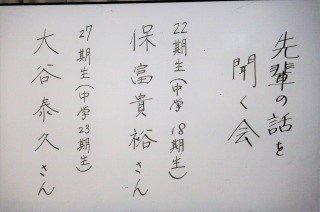 先輩の話を
聞く会
22期生(中学18期生)
保富貴裕さん
27期生(中学23期生)
大谷泰久さん